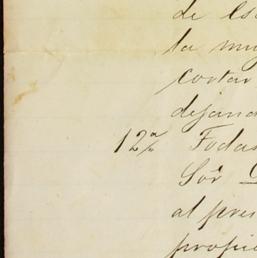 de
la
cortar
dejand
12ª Todas
Sor
al pres
propie